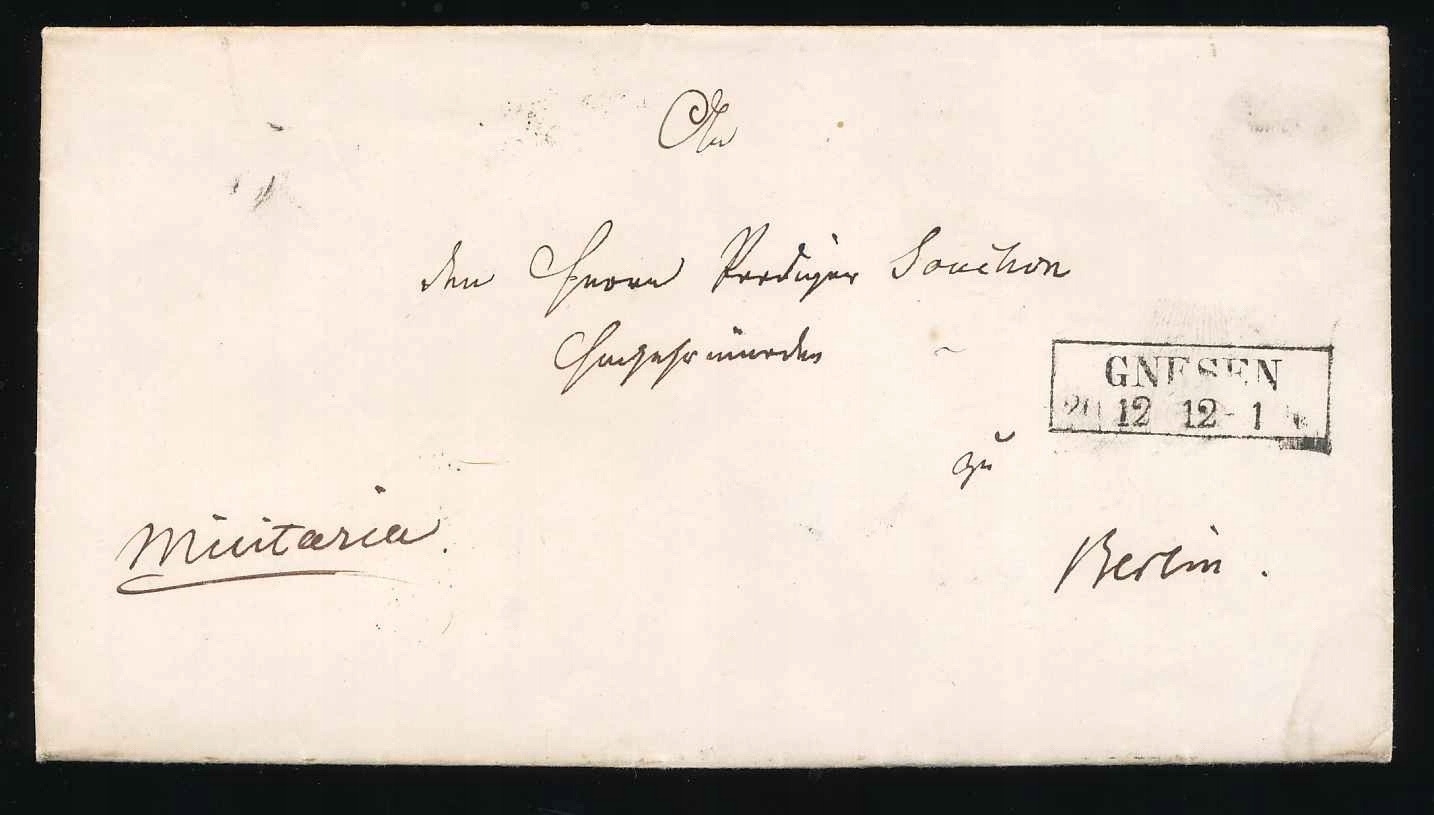 An
den Herrn Prediger Souchon
Hochehrwürden
GNESEN
20 12 12-1
zu
Militaria.
Berlin.